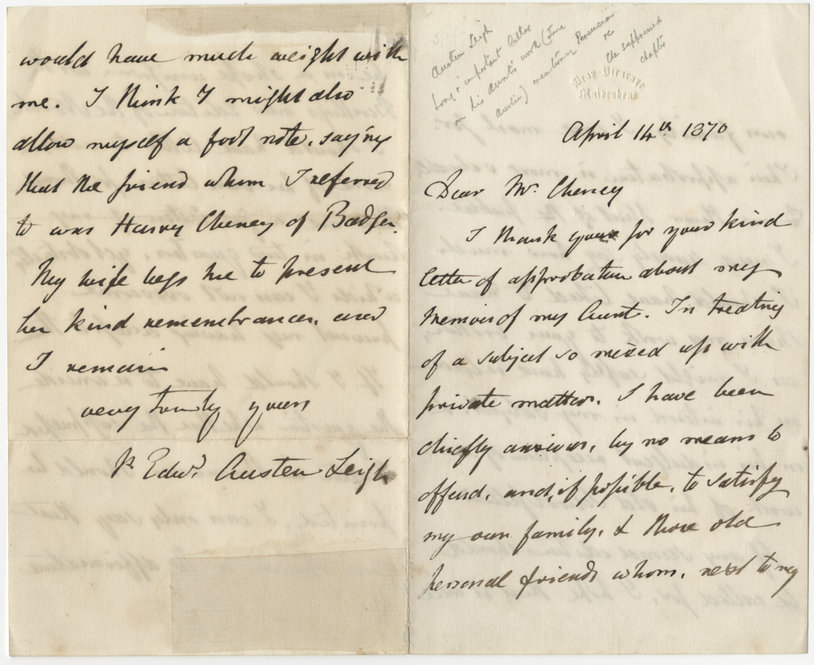 Austen Leigh
Long & important letter
on his Aunt's work (Jane
Austen) mentioning Persuasion
&c
the suppressed
chapter
Bray Vicarage
Maidenhead
April 14th 1870
Dear Mr. Cheney
I thank you for your kind
letter of approbation about my
Memoir of my Aunt. In treating
of a subject so mixed up with
private matters, I have been
chiefly anxious, by no means to
offend, and, if possible, to satisfy
my own family, & those old
personal friends whom, next to my
would have much weight with
me. I think I might also
allow myself a foot note, saying
that the friend whom I referred
to was Harry Cheney of Badger.
My wife begs me to present
her kind remembrances, and
I remain
very truly yours
Jas. Edwd. Austen Leigh